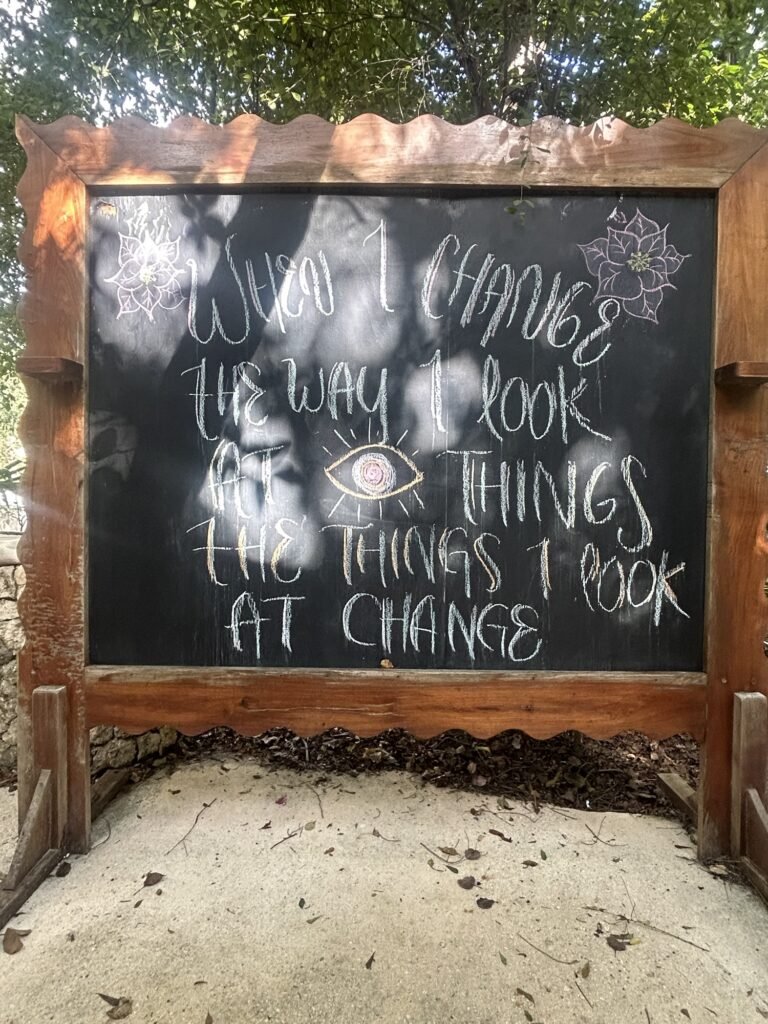 WHEN I CHANGE
THE WAY I LOOK
AT THINGS
THE THINGS I LOOK
AT CHANGE